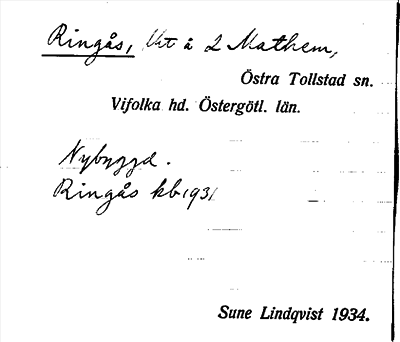 Ringås, Vrt å 2 Mathem,
Östra Tollstad sn.
Vifolka hd. Östergötl. län.
Nybyggd.
Ringås kb 1931
Sune Lindqvist 1934.